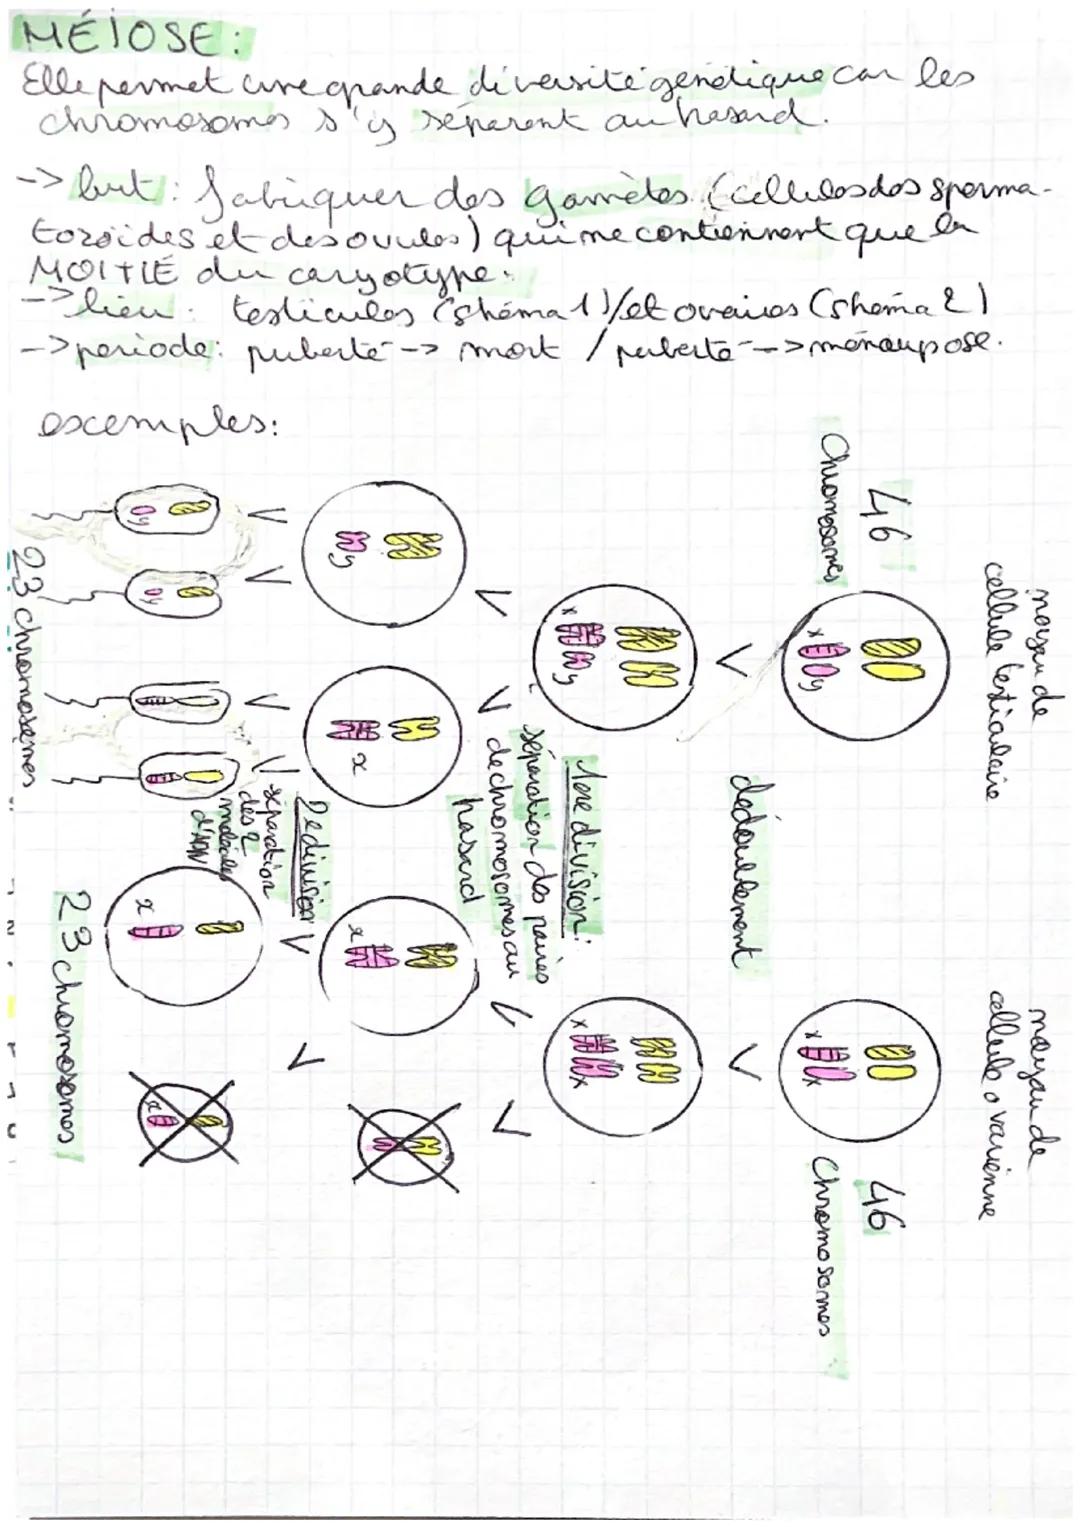 MÉIOSE :
Elle permet une grande diversité génétique car les
chromosomes s'y séparent au hasard.
-> but : fabriquer des gamètes (cellules des sperma-
tozoïdes et des ovules) qui ne contiennent que la
MOITIÉ du caryotype.
-> lieu : testicules (shéma 1) / et ovaires (shéma 2)
-> période : puberté --> mort / puberté --> ménaupose.
excemples :
noyau de
cellule testiculaire
46
Chromosomes
x y
dédoublement
x y
1ere division :
séparation des paires
de chromosomes au
hasard
y
x
2e division
séparation
des 2
molécules
d'ADN
y
y
23 chromosomes
noyau de
cellule ovarienne
46
Chromosomes
x x
x x
x
x
x
23 chromosomes